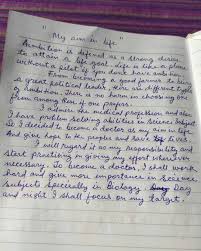 "My aim in life"
Ambition is defined as a strong desire
to attain a life goal. Life is like a plane
without a pilot if you dont have ambition.
From becoming a good farmer to being
a great political leader, there are different types
of ambition. There is no harm in choosing one
from among them if one prefers.
I admire the medical profession and also
I have problem solving abilities in Science Subject
So I decided to become a doctor as my aim in life
And give hope to the peoples and save lives
I will regard it as my responsibility and
start practising in giving my effort wherever
necessary. To become a doctor, I shall work
hard and give more importance in science
subjects specially in Biology. Day
and night I shall focus on my target.